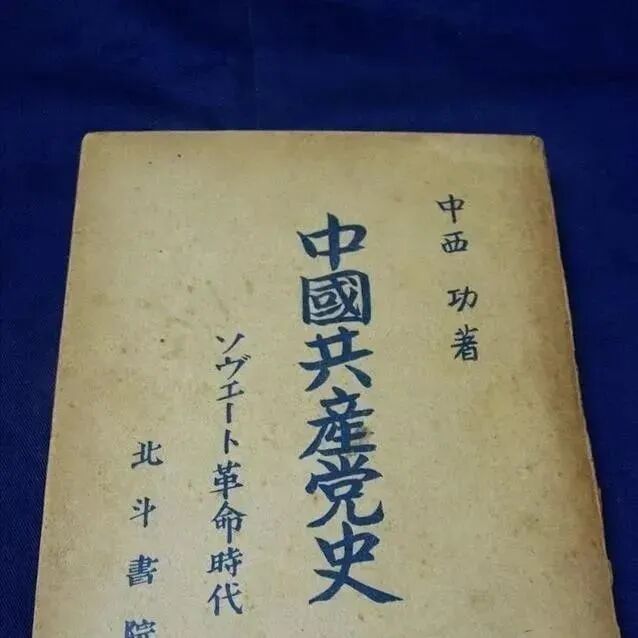 中西 功著
中國共産党史
ソヴエート革命時代
北斗書院